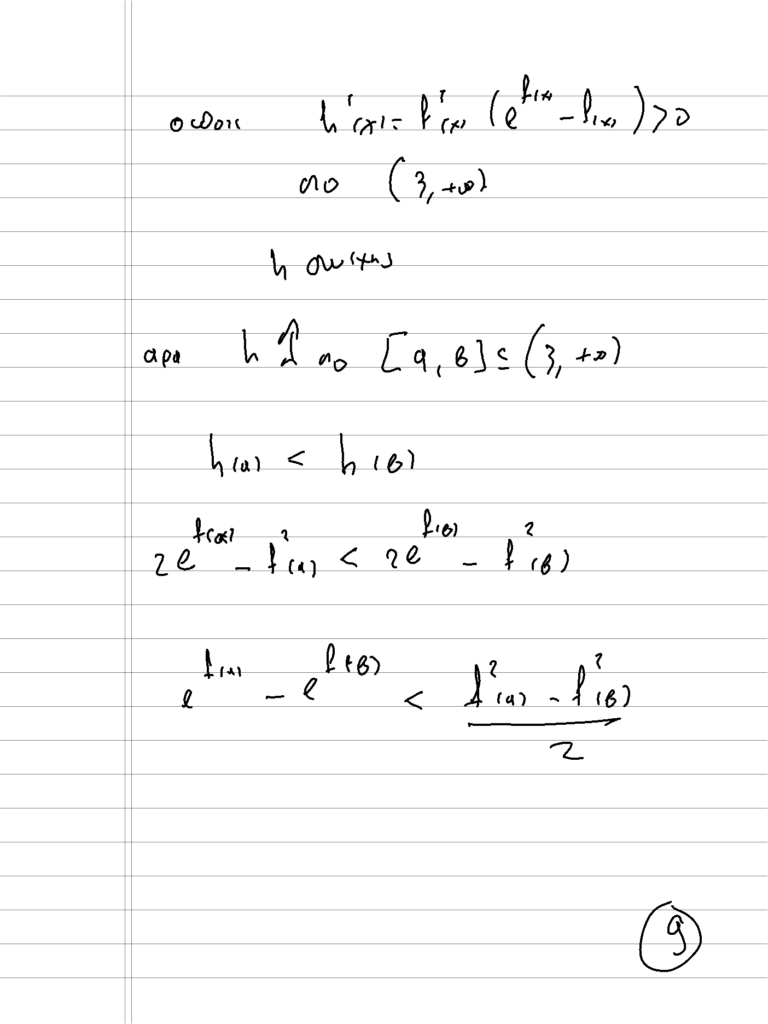 οπότε h'(x) = f'(x) (e^{f(x)} - f(x)) > 0
στο (3, +∞)
h συνεχής
άρα h ↑ στο [α, β] ⊆ (3, +∞)
h(α) < h(β)
2e^{f(α)} - f²(α) < 2e^{f(β)} - f²(β)
e^{f(α)} - e^{f(β)} < \frac{f²(α) - f²(β)}{2}
9